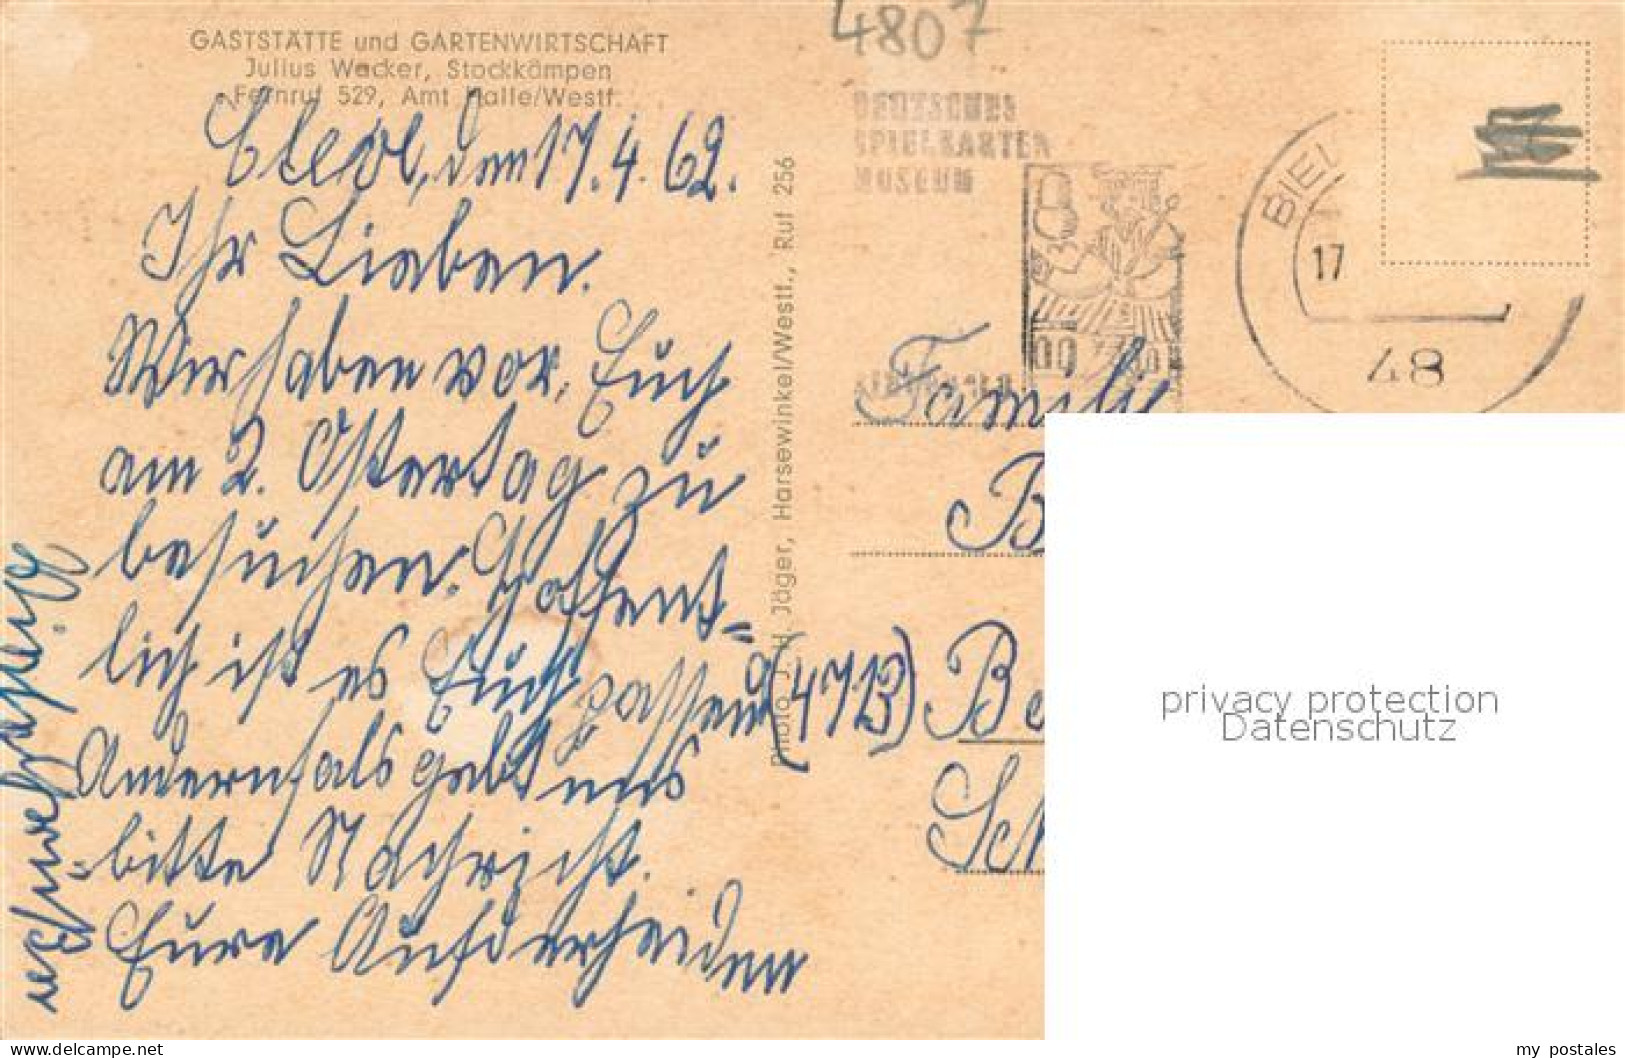 GASTSTÄTTE und GARTENWIRTSCHAFT
Julius Wacker, Stockkämpen
Fernruf 529, Amt Halle/Westf.
den 17.4.62.
Ihr Lieben.
Wir haben vor, Euch
am 2. Ostertag zu
besuchen. Hoffent=
lich ist es Euch passend
Andernfalls gebt uns
bitte Nachricht.
Eure Aufderheiden
Photo J. H. Jäger, Harsewinkel/Westf., Ruf 256
4807
DEUTSCHES
SPIELKARTEN
MUSEUM
BIEL
17
48
Familie
B
(4713) Be
Sch
privacy protection
Datenschutz
my postales